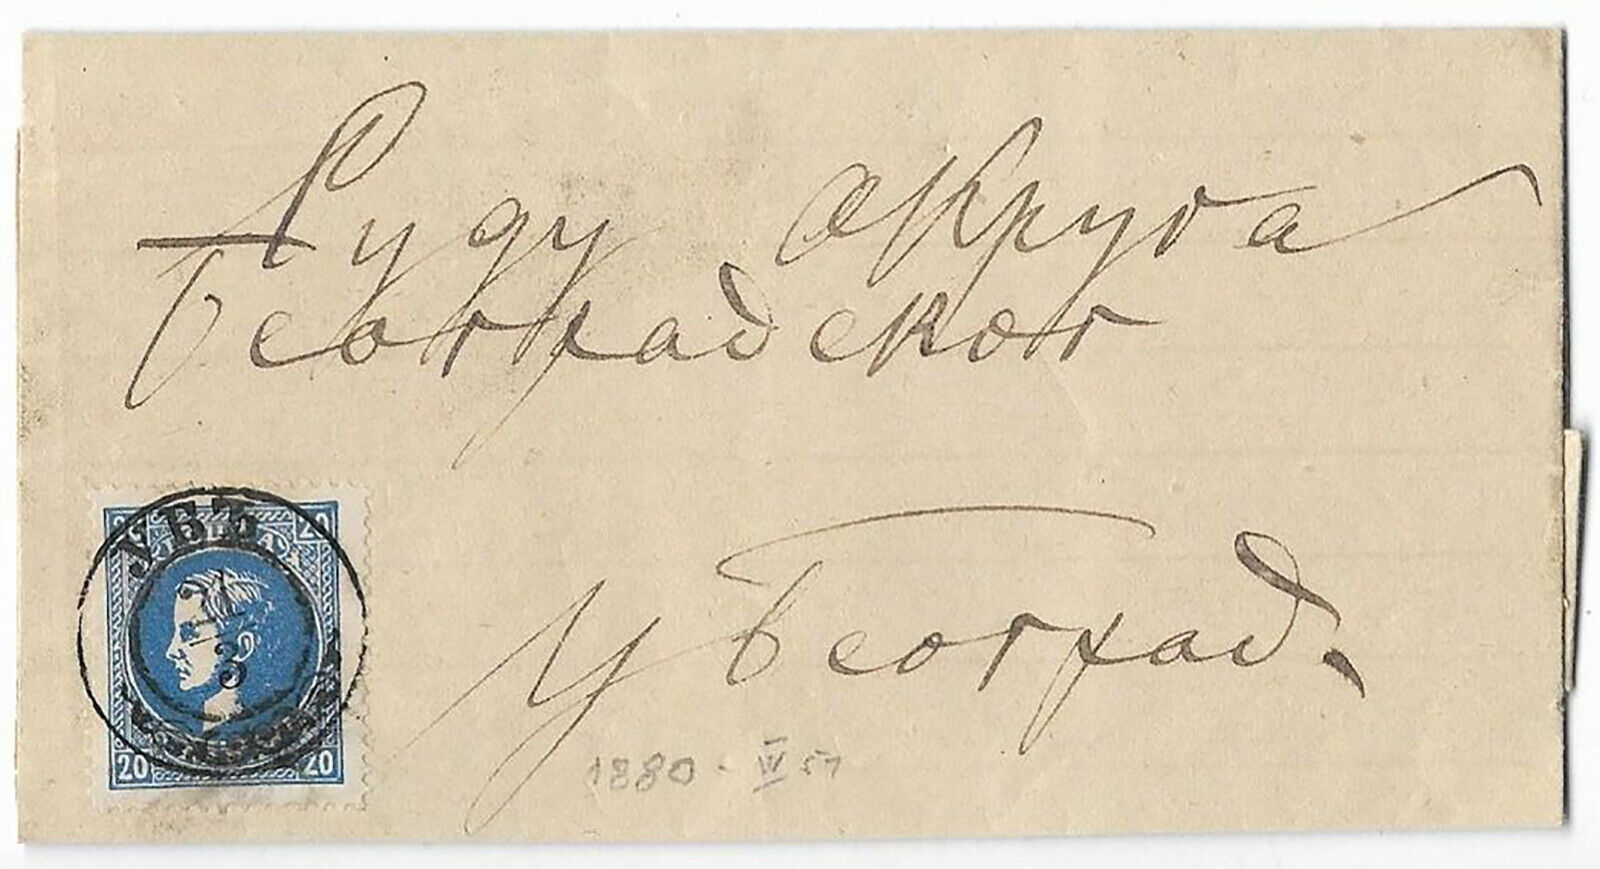 Суду округа
Београдског
у Београд.
УБЪ
20 20
3
20 20
1880 - IV